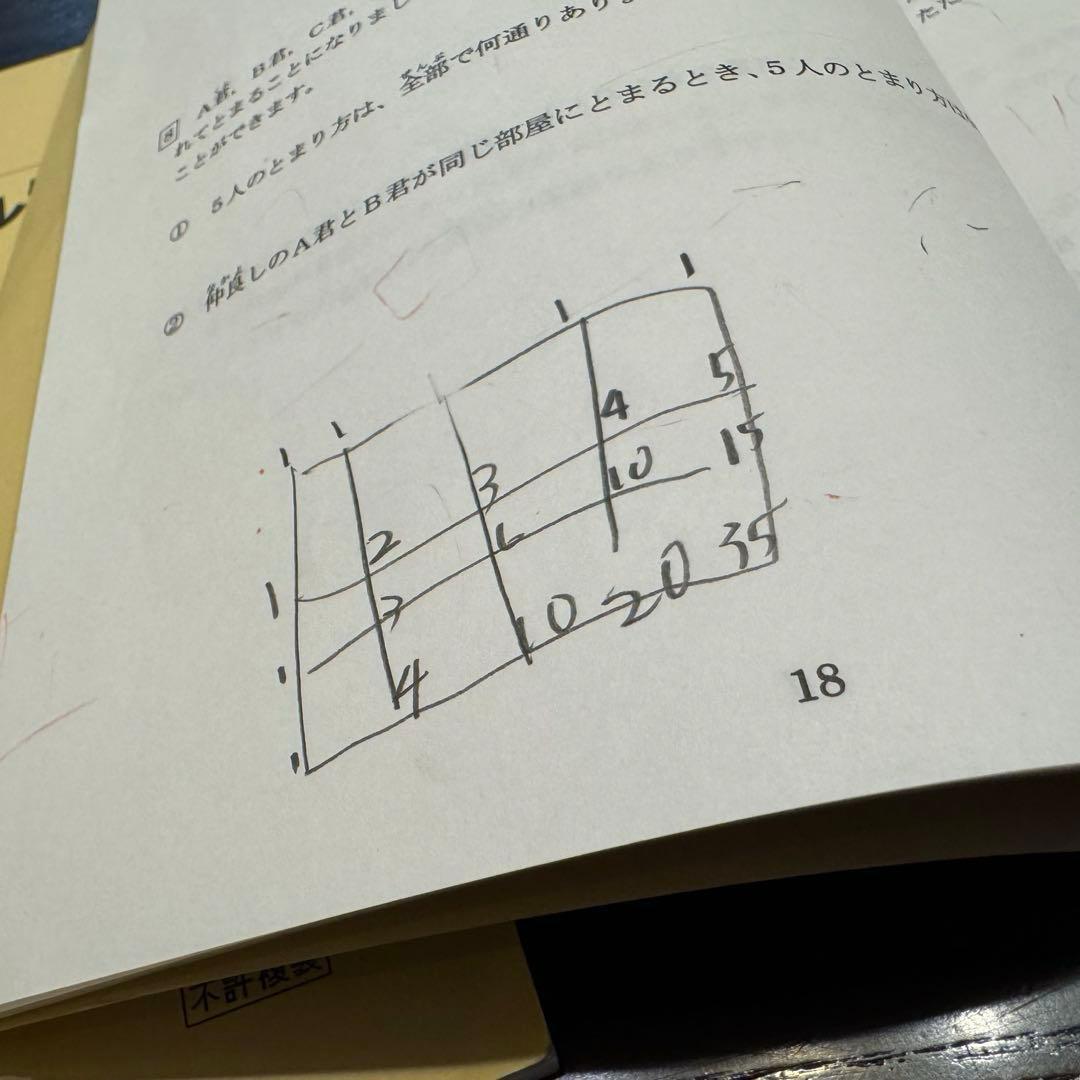 8 A君、B君、C君、
れてとまることになりまし
ことができます。
① 5人のとまり方は、全部で何通りあり
② 仲良しのA君とB君が同じ部屋にとまるとき、5人のとまり方は
1 1 1 1
1 2 3 4 5
1 3 6 10 15
1 4 10 20 35
18
不許複製